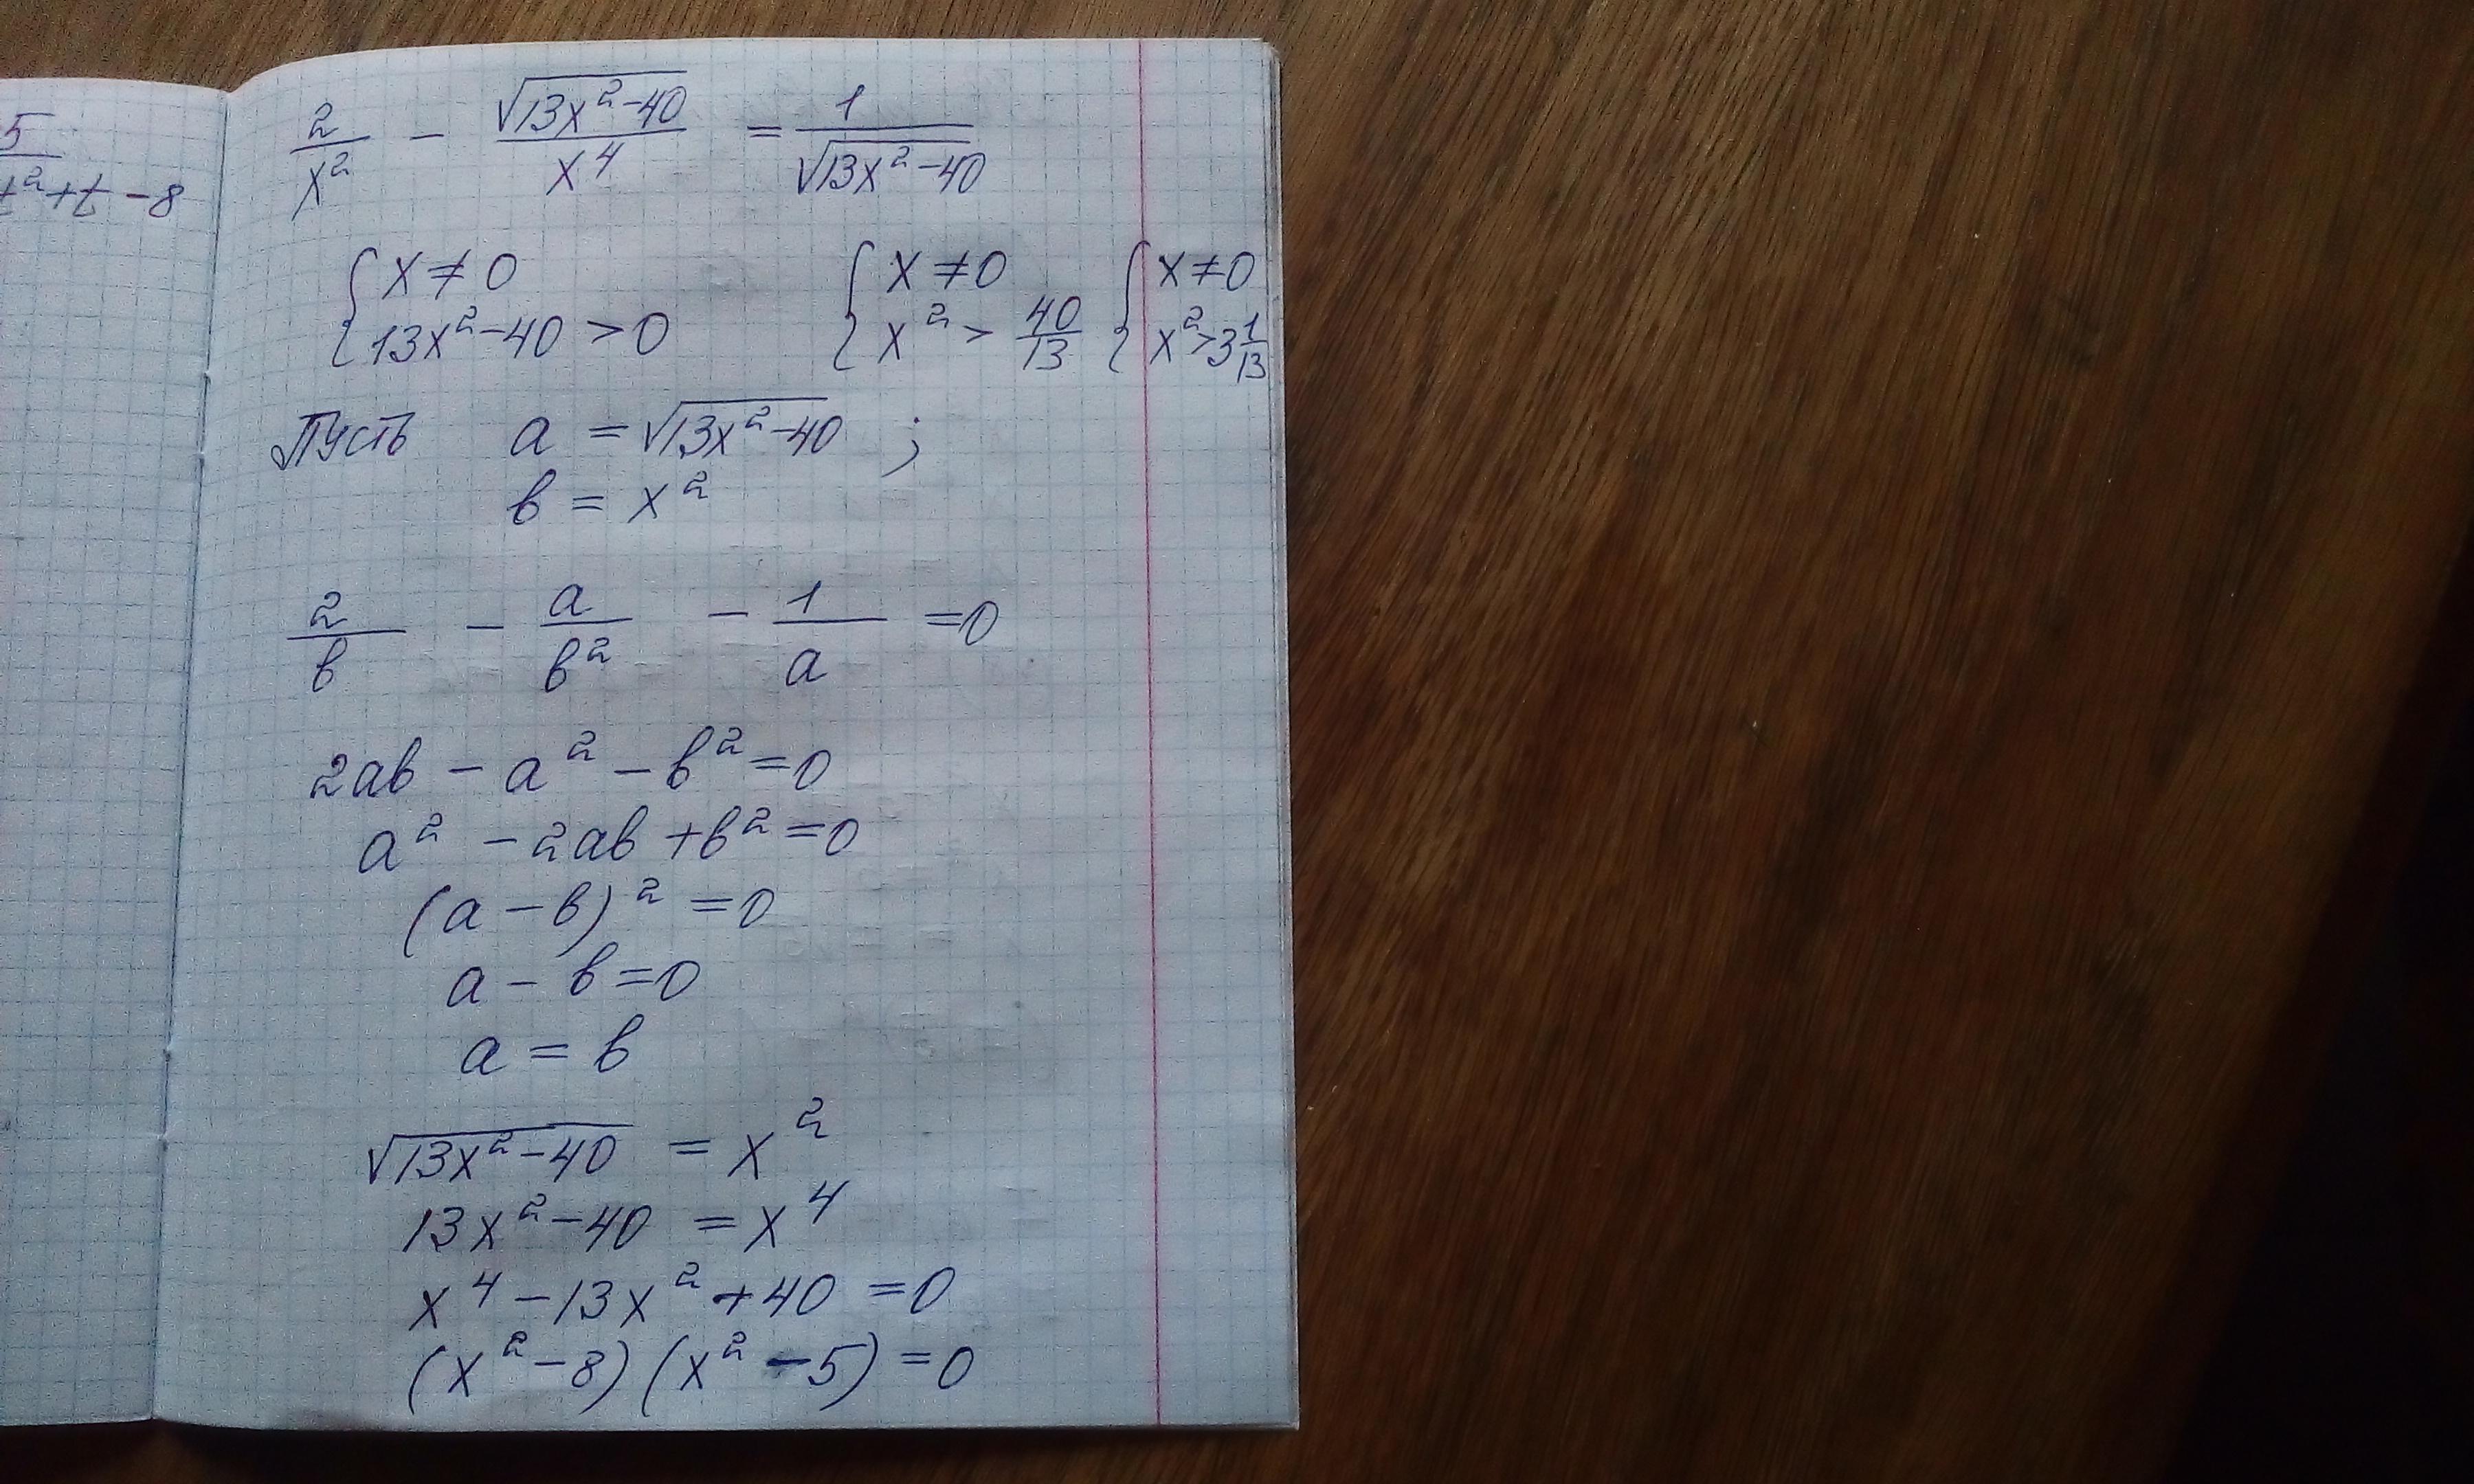 5
t² + t - 8
2/x² - √(13x² - 40)/x⁴ = 1/√(13x² - 40)
{ x ≠ 0 { x ≠ 0 { x ≠ 0
13x² - 40 > 0 x² > 40/13 x² > 3 1/13
Пусть a = √(13x² - 40) ;
b = x²
2/b - a/b² - 1/a = 0
2ab - a² - b² = 0
a² - 2ab + b² = 0
(a - b)² = 0
a - b = 0
a = b
√(13x² - 40) = x²
13x² - 40 = x⁴
x⁴ - 13x² + 40 = 0
(x² - 8)(x² - 5) = 0